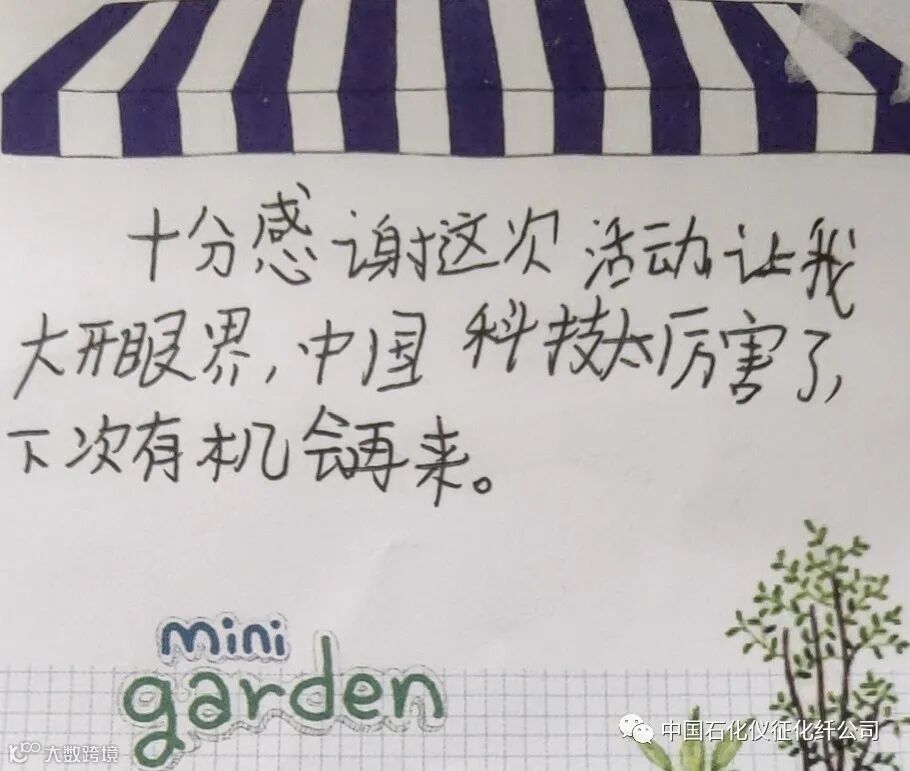 十分感谢这次活动让我
大开眼界,中国科技太厉害了,
下次有机会再来。
mini
garden
中国石化仪征化纤公司
大数跨境